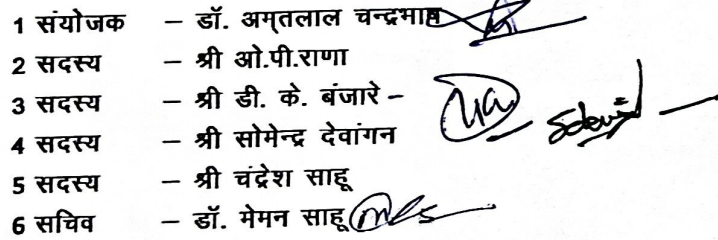 1 संयोजक – डॉ. अमृतलाल चन्द्रभाष
2 सदस्य – श्री ओ.पी.राणा
3 सदस्य – श्री डी. के. बंजारे –
4 सदस्य – श्री सोमेन्द्र देवांगन
5 सदस्य – श्री चंद्रेश साहू
6 सचिव – डॉ. मेमन साहू